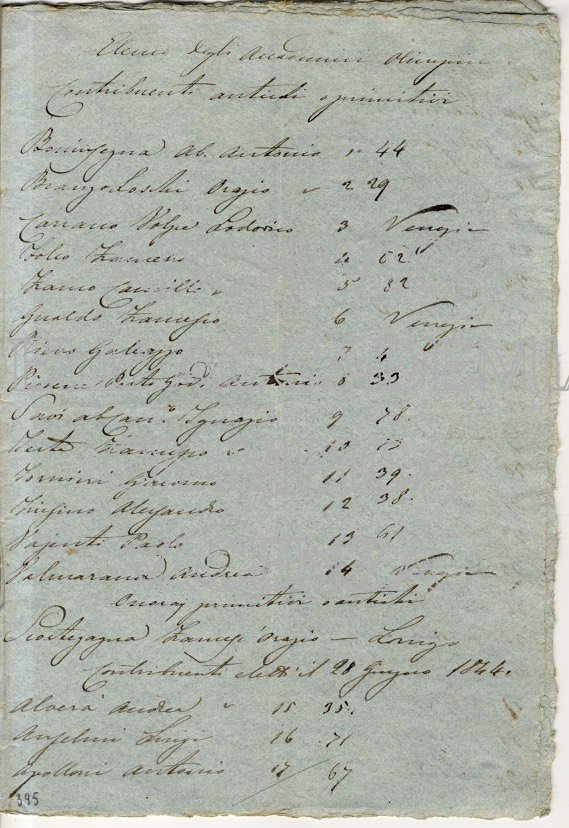 Elenco degli Accademici Olimpici
Contribuenti antichi o primitivi
Boninsegna Ab. Antonio 1 44
Branzo Loschi Orazio 2 29
Cariano Volpe Lodovico 3 Venezia
4 62
Franco Camillo 5 82
Gualdo Francesco 6 Venezia
Piovene Galeazzo 7 4
Piovene Porto God. Antonio 8 33
Savi ab. Can.º Ignazio 9 78.
Testa Francesco 10 13
Tornieri Giacomo 11 39.
Trissino Alessandro 12 38.
Vajenti Paolo 13 61
Valmarana Andrea 14 Venezia
Onoraj primitivi o antichi
Scortegagna Francesc' Orazio — Lonigo
Contribuenti eletti il 28 Giugno 1844.
Alverà Andrea 15 35.
Anselmi Luigi 16 71
Apolloni Antonio 17 67
395